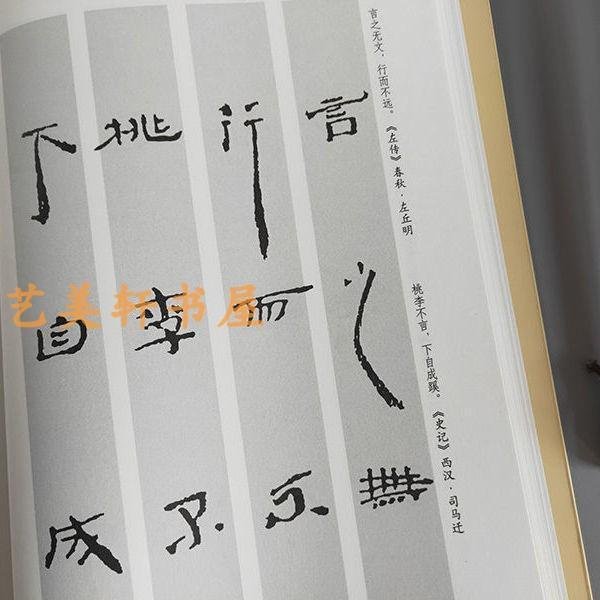 言之无文，行而不远。《左传》春秋·左丘明
桃李不言，下自成蹊。《史记》西汉·司马迁
言之無
行而不
桃李不
下自成
艺美轩书屋